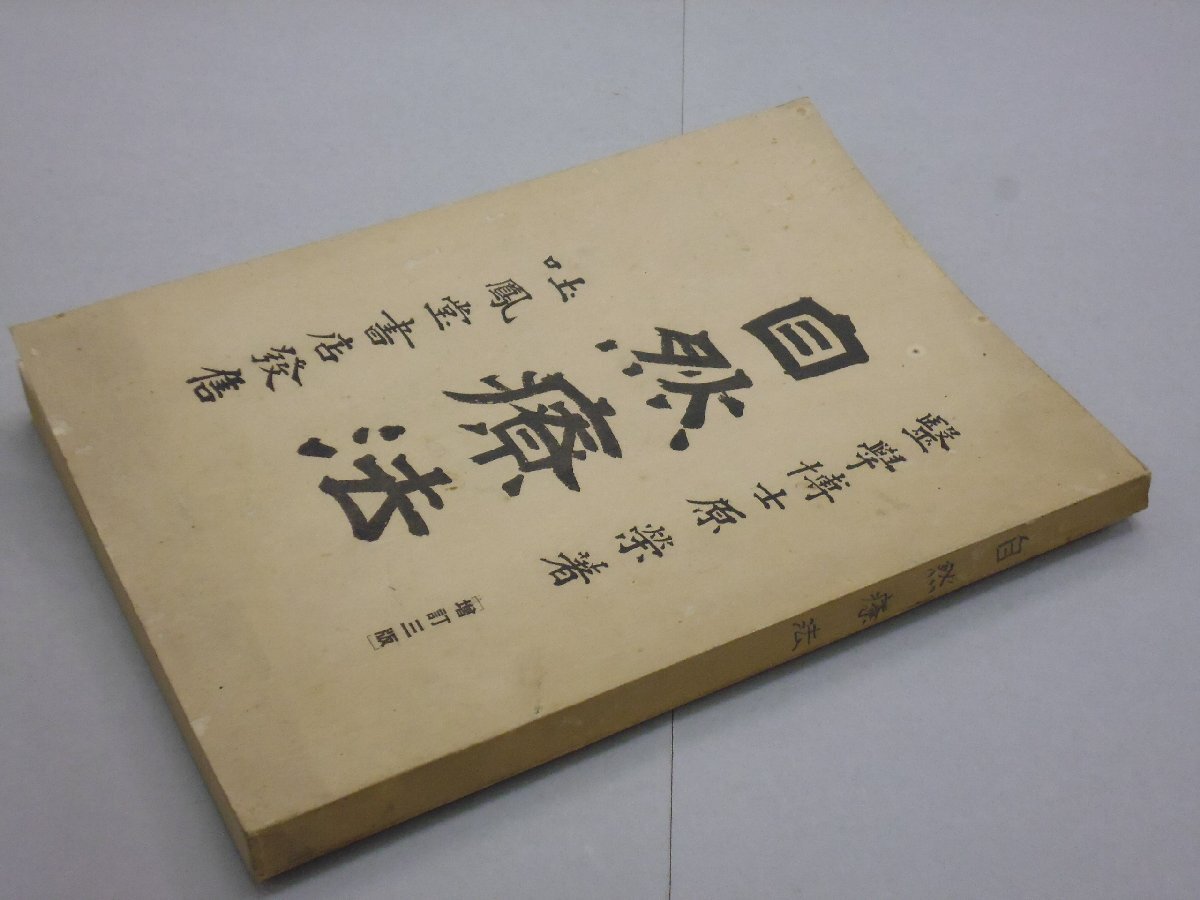 醫學博士原榮著
自然療法
[增訂三版]
吐鳳堂書店發售
自然療法